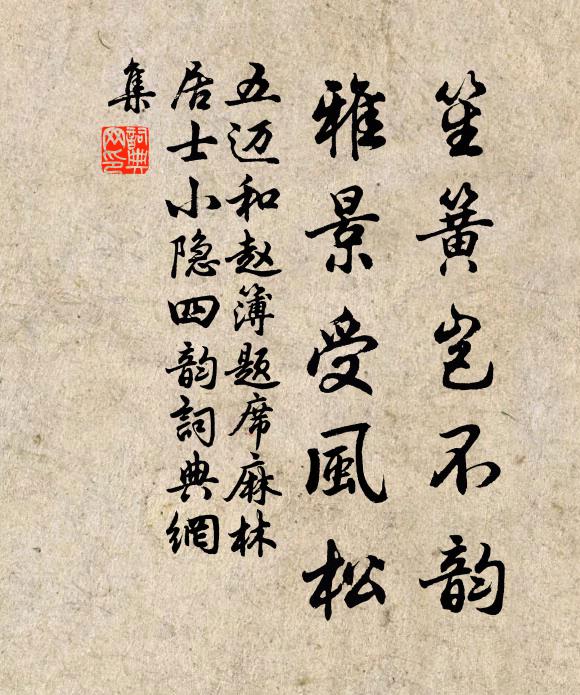 笙簧岂不韵
雅景受風松
五迈和赵簿题席麻林
居士小隐四韵詞典網
集
詞典
网印